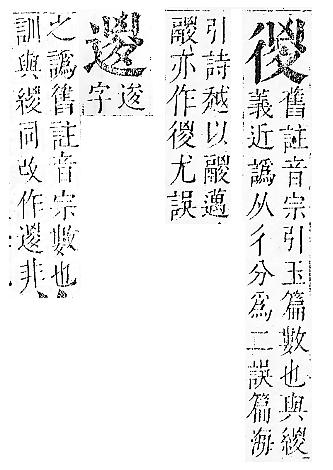 㣭
舊註音宗引玉篇數也與緵
義近譌从彳分爲二誤篇海
引詩越以鬷邁
鬷亦作㣭尤誤
遂
字
之譌舊註音宗數也
訓與緵同改作非